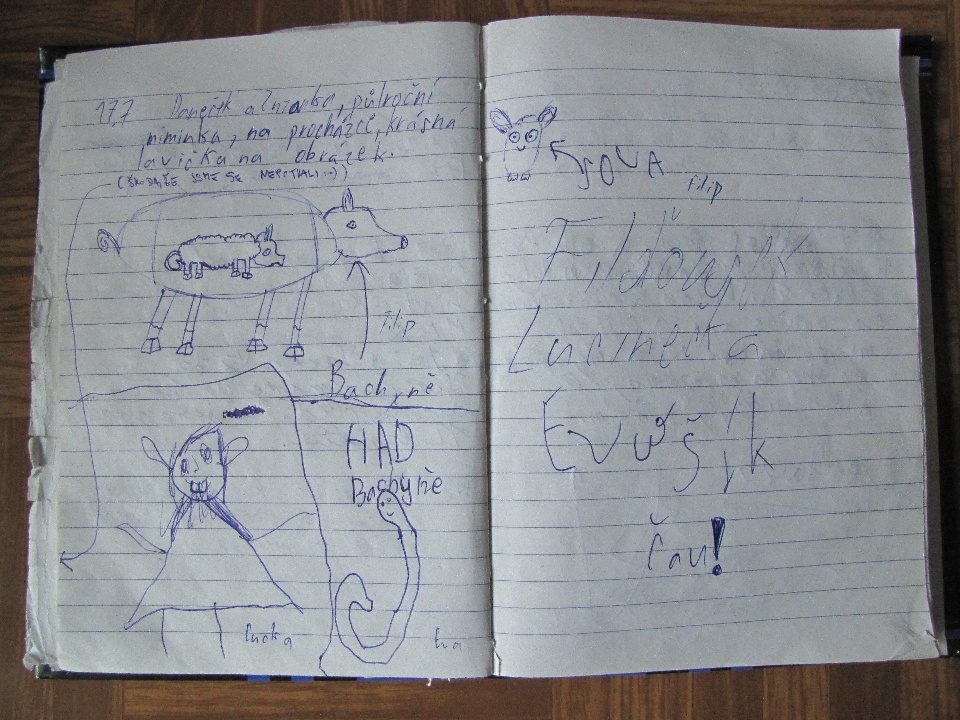 17.7 Daneček a Zuzanka, půlroční
miminka, na procházce, krásná
lavička na obrázek.
(ŠKODA, ŽE JSME SE NEPOTKALI :-))
Filip
Bachyně
HAD
Bachyně
lucka
Eva
SOVA
Filip
Fildoušek
Lucinečka
Evušik
Čau!